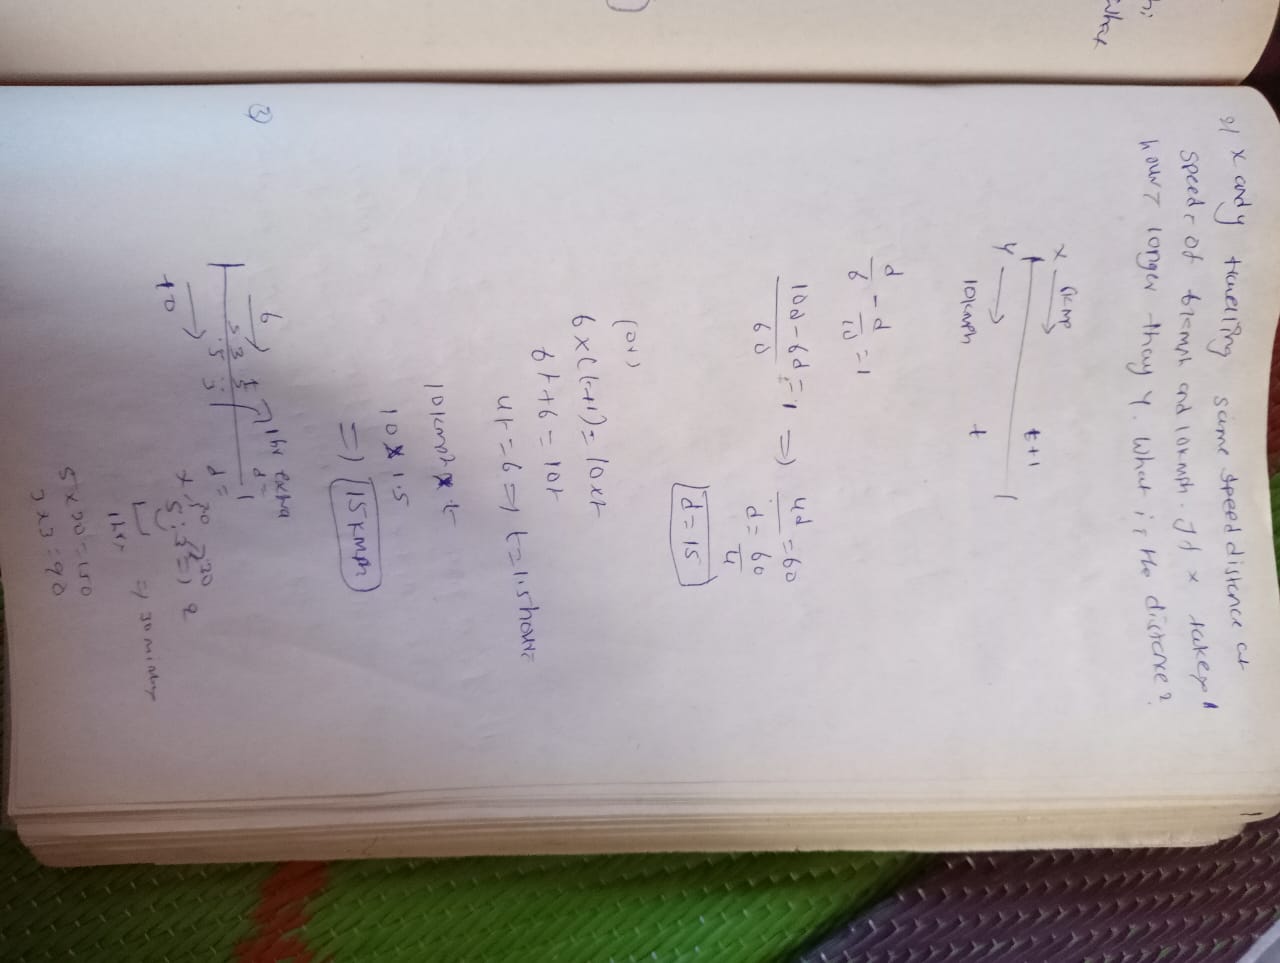 hi
what
2) x and y travelling same speed distance at
speeds of 6 kmph and 10kmph. If x takes 1
hours longer than y. What is the distance?
x 6kmp t+1
y 10kmph t
d/6 - d/10 = 1
10d - 6d / 60 = 1 => 4d = 60
d = 60/4
d = 15
(or)
6 x (t+1) = 10xt
6t+6 = 10t
4t = 6 => t = 1.5 hours
10kmph x t
10 x 1.5
=> 15kmph
3)
6 1hr extra
5 3 5 d=
5 : 3 d=
10
5 : 3 => 2
1hr => 30 minutes
5 x 30 = 150
3 x 3 = 90